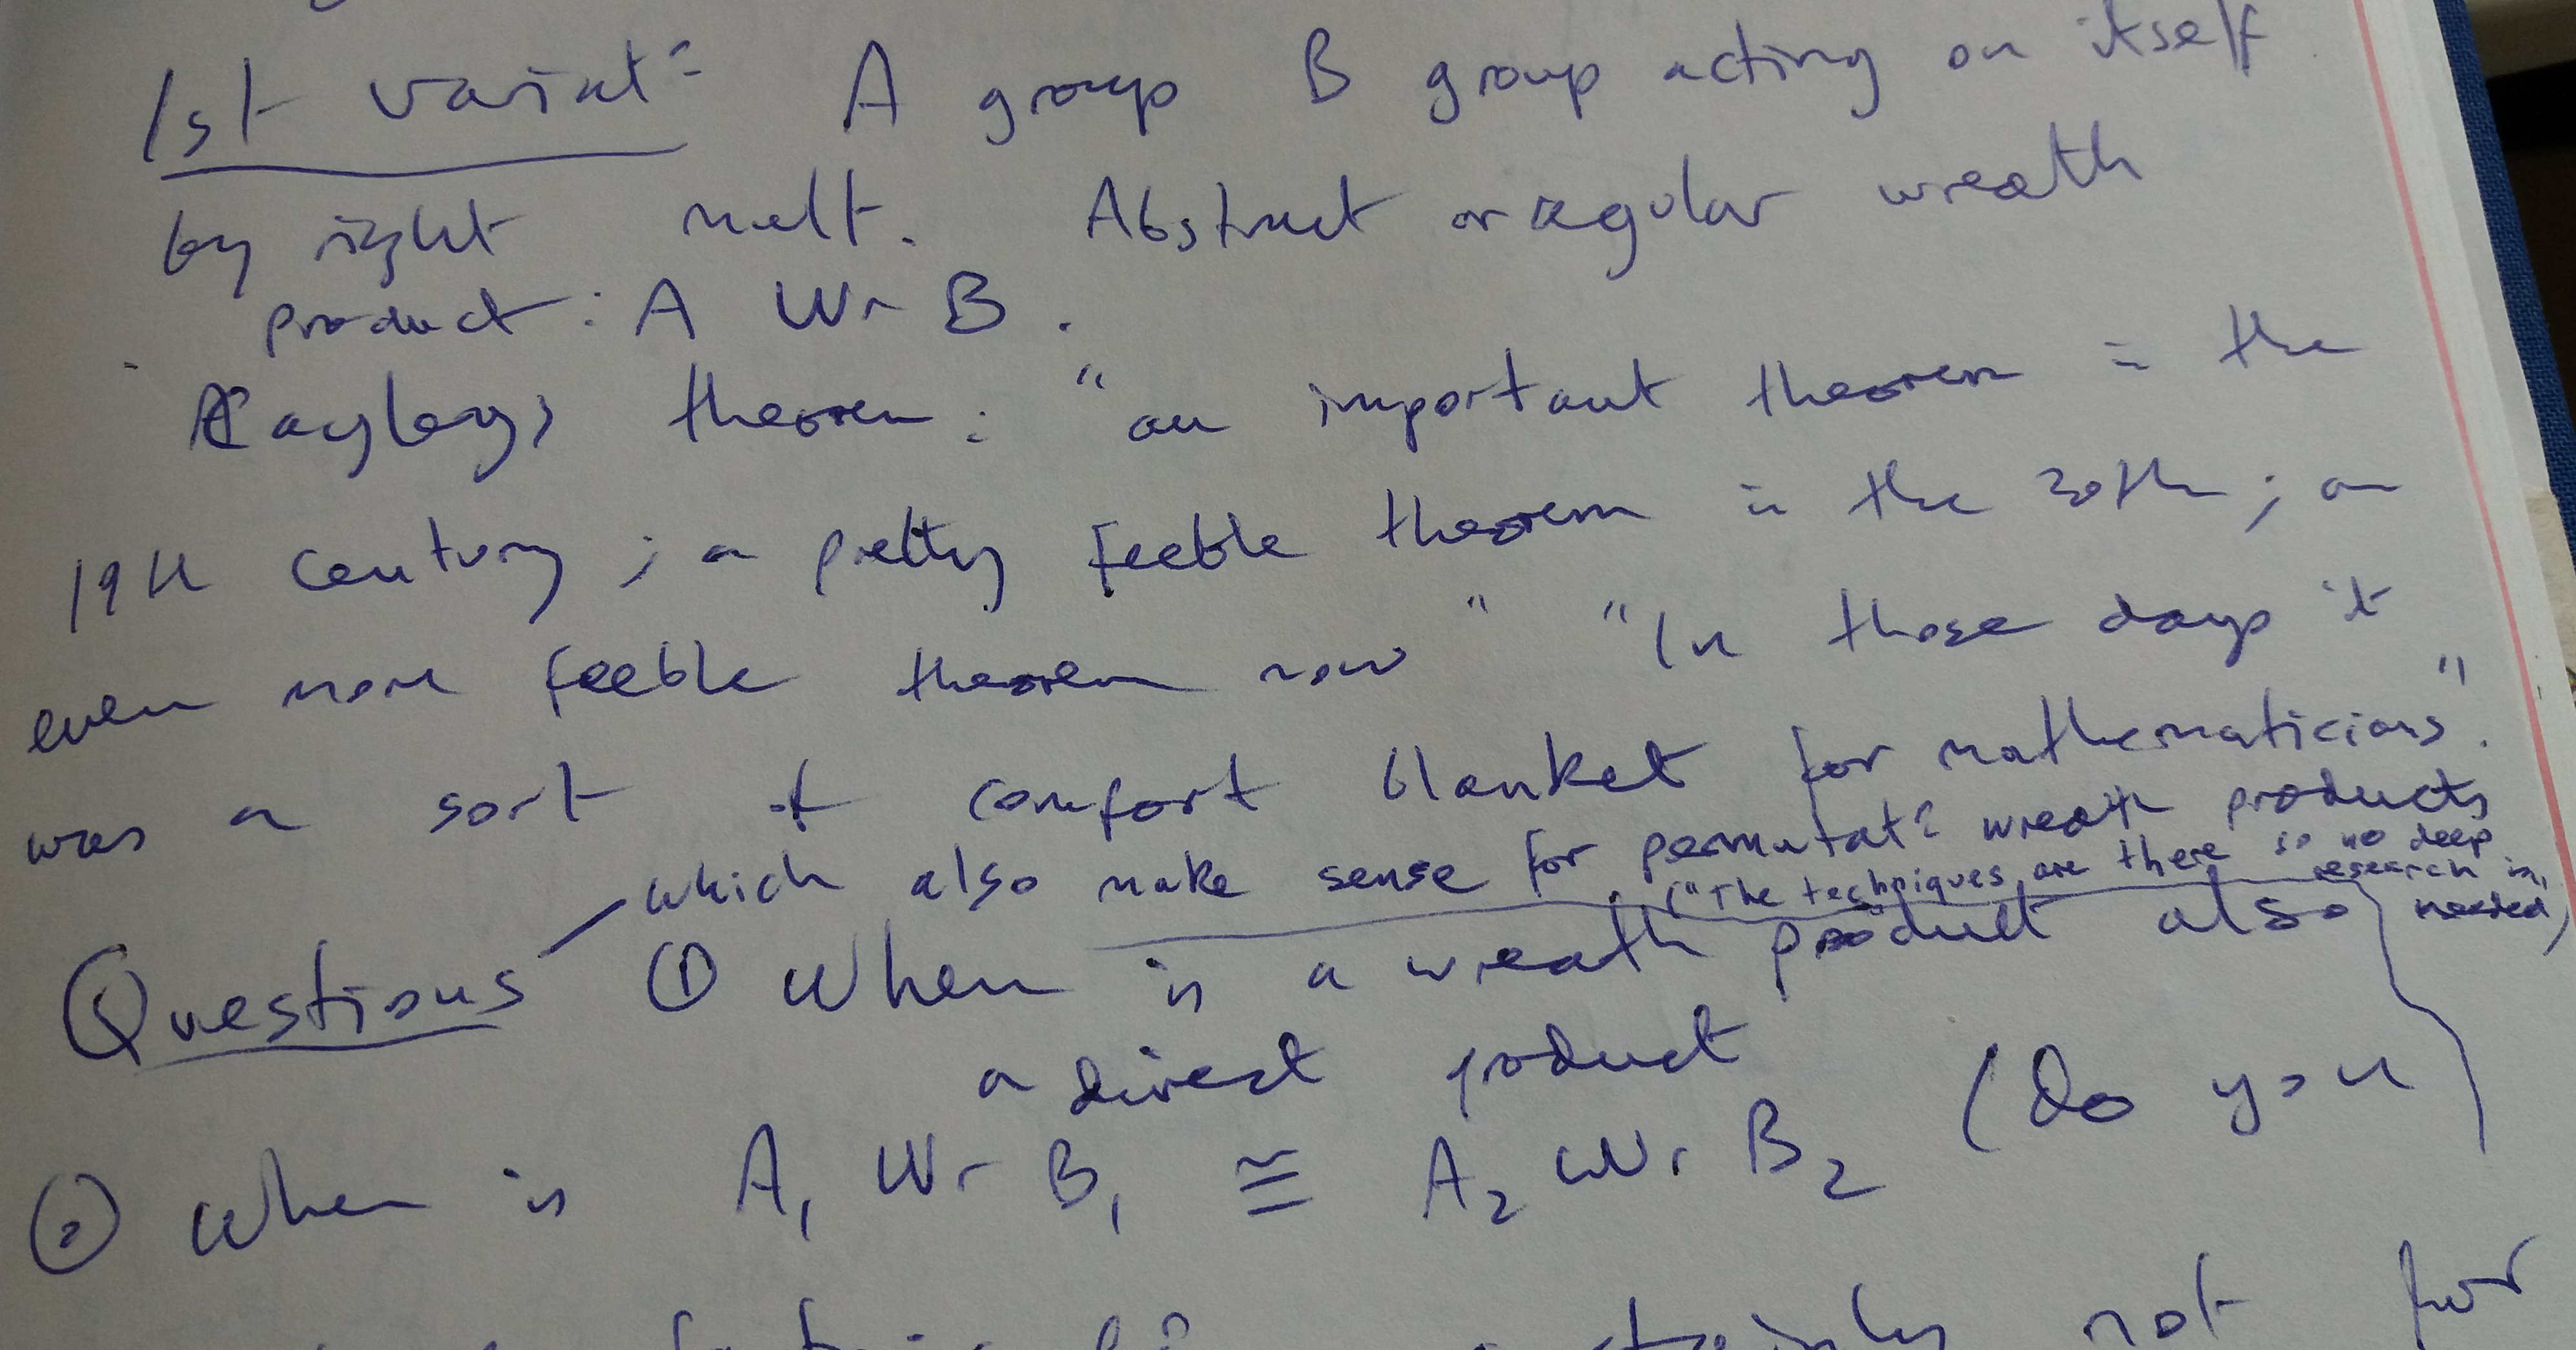 1st variatn A group B group acting on itself
by right mult. Abstract or regular wreath
product : A Wr B .
Cayleys theorem : "an important theorem in the
19th century ; a pretty feeble theorem in the 20th ; an
even more feeble theorem now" "In those days it
was a sort of comfort blanket for mathematicians".
which also make sense for permutatn wreath products
("The techniques are there so no deep
research is
needed)
Questions ① When is a wreath product also
a direct product
② When is A₁ Wr B₁ ≅ A₂ Wr B₂ (Do you
not for